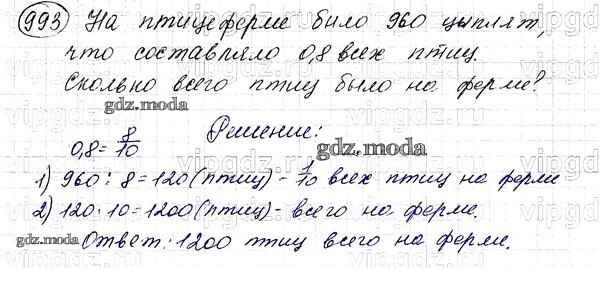 993 На птицеферме было 960 цыплят,
что составляло 0,8 всех птиц.
Сколько всего птиц было на ферме?
gdz.moda
Решение:
0,8 = 8/10
gdz.moda
1) 960 : 8 = 120 (птиц) - 1/10 всех птиц на ферме
2) 120 · 10 = 1200 (птиц) - всего на ферме.
gdz.moda Ответ: 1200 птиц всего на ферме.
vipgdz